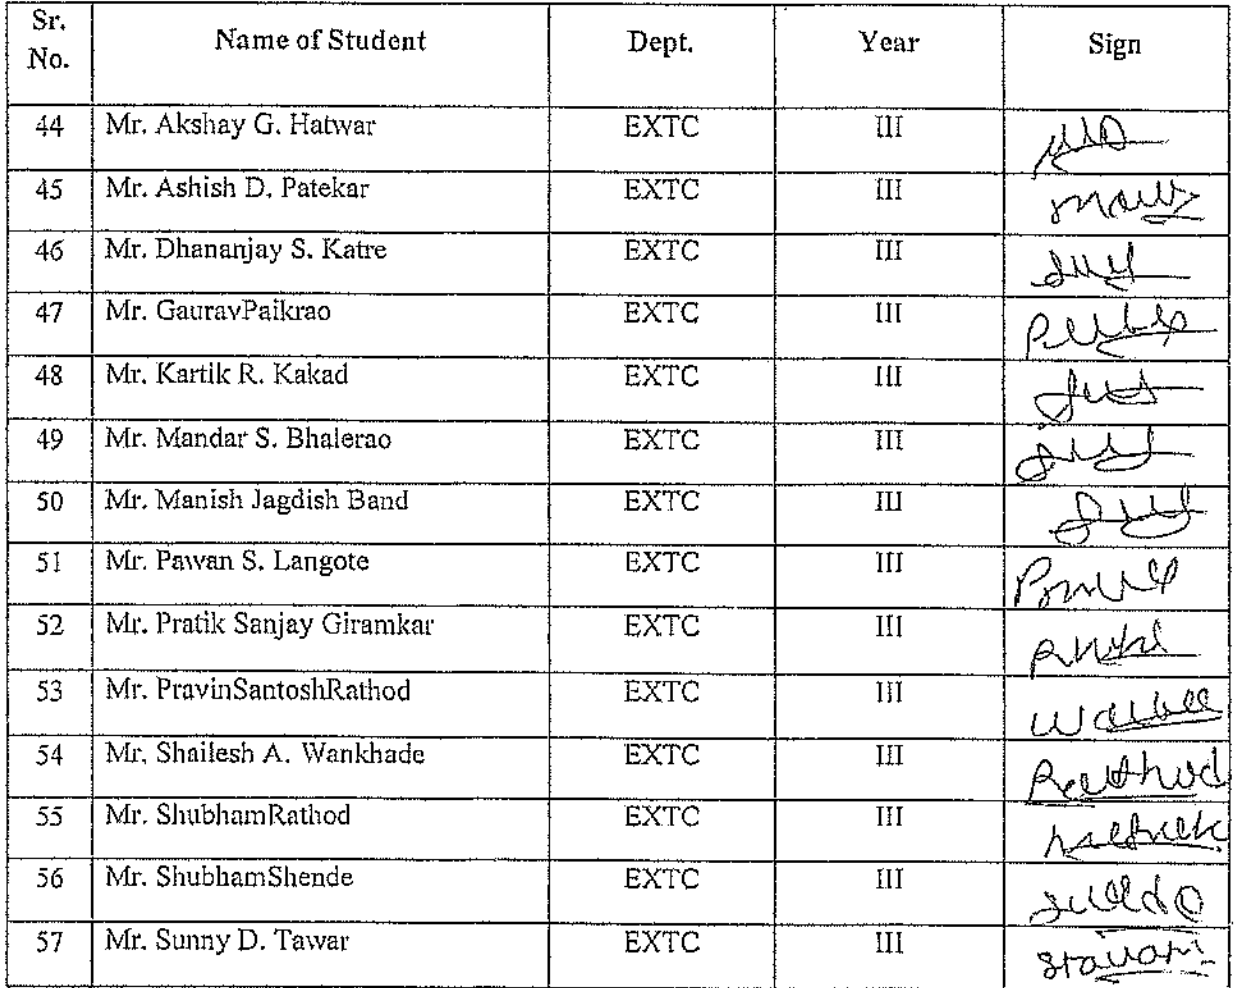 Sr. No. Name of Student Dept. Year Sign
44 Mr. Akshay G. Hatwar EXTC III
45 Mr. Ashish D. Patekar EXTC III
46 Mr. Dhananjay S. Katre EXTC III
47 Mr. GauravPaikrao EXTC III
48 Mr. Kartik R. Kakad EXTC III
49 Mr. Mandar S. Bhalerao EXTC III
50 Mr. Manish Jagdish Band EXTC III
51 Mr. Pawan S. Langote EXTC III
52 Mr. Pratik Sanjay Giramkar EXTC III
53 Mr. PravinSantoshRathod EXTC III
54 Mr. Shailesh A. Wankhade EXTC III Rathod
55 Mr. ShubhamRathod EXTC III
56 Mr. ShubhamShende EXTC III
57 Mr. Sunny D. Tawar EXTC III